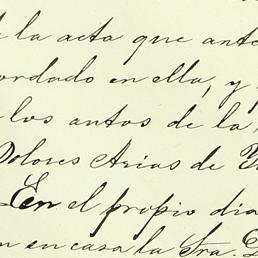 la acta que ante
ordado en ella, y
los autos de la
Dolores Arias de
En el propio dia
en casa la Sra.